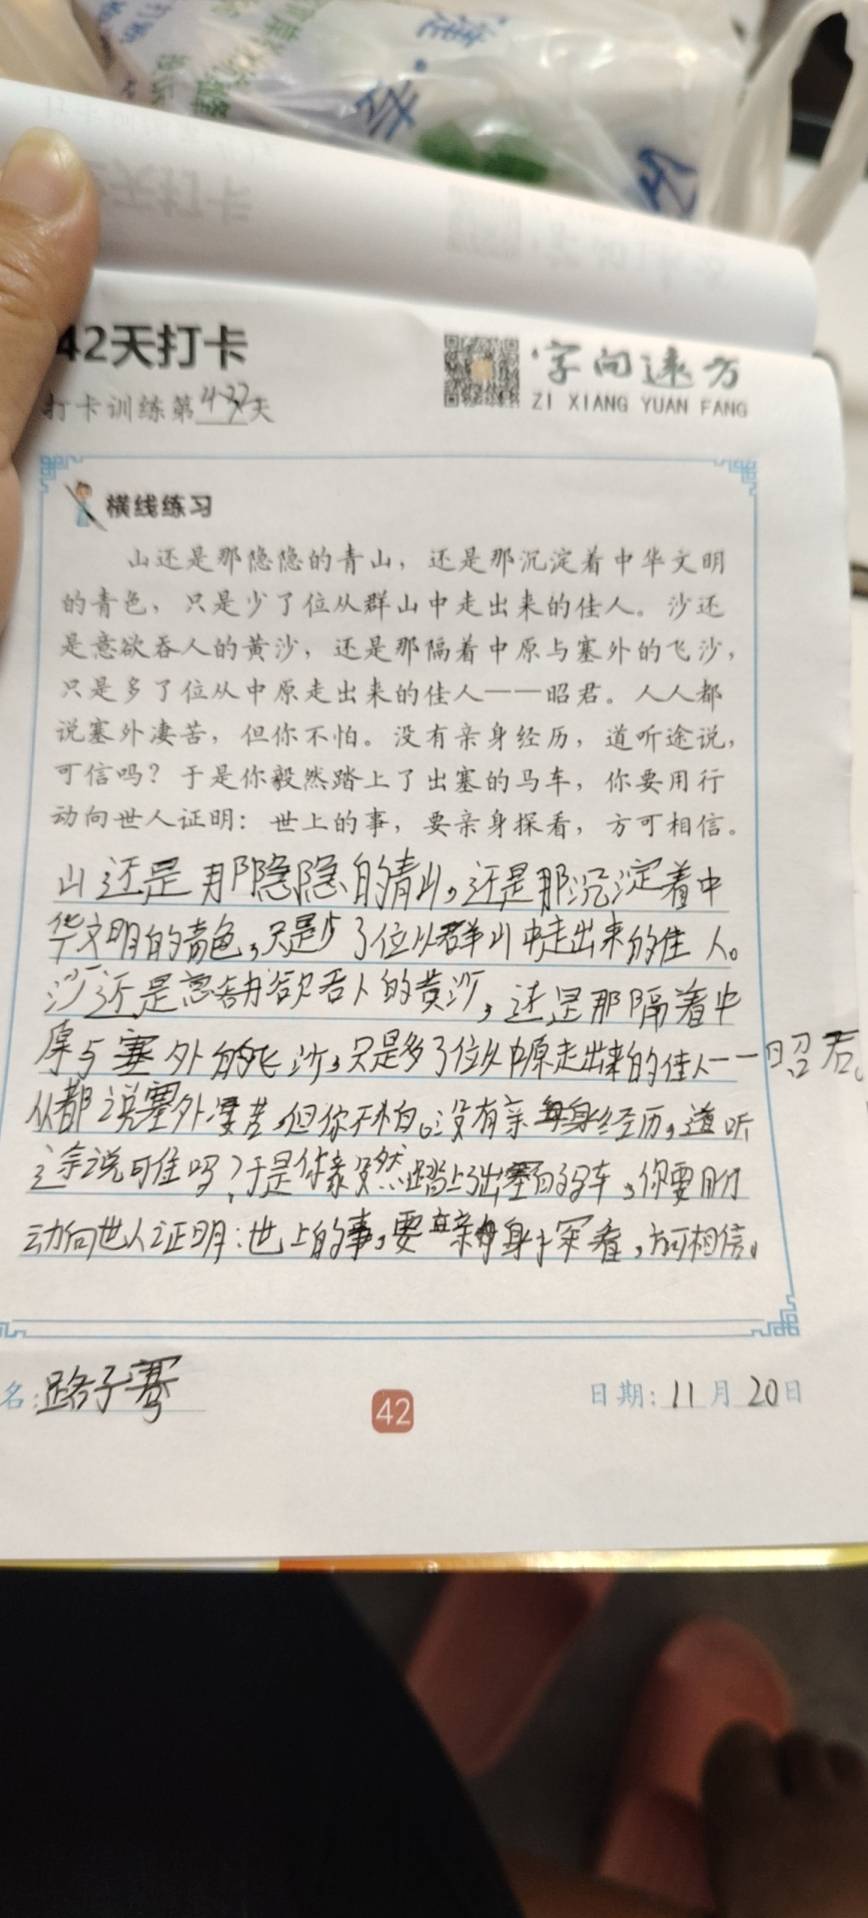 42天打卡
字向远方
ZI XIANG YUAN FANG
打卡训练第 天
横线练习
山还是那隐隐的青山，还是那沉淀着中华文明
的青色，只是少了位从群山中走出来的佳人。沙还
是意欲吞人的黄沙，还是那隔着中原与塞外的飞沙，
只是多了位从中原走出来的佳人——昭君。人人都
说塞外凄苦，但你不怕。没有亲身经历，道听途说，
可信吗？于是你毅然踏上了出塞的马车，你要用行
动向世人证明：世上的事，要亲身探看，方可相信。
山还是那隐隐的青山，还是那沉淀着中
华文明的青色，只是少了位从群山中走出来的佳人。
沙还是意欲吞人的黄沙，还是那隔着中
原与塞外的飞沙，只是多了位从中原走出来的佳人——昭君。
人人都说塞外凄苦，但你不怕。没有亲身经历，道听
途说可信吗？于是你毅然踏上了出塞的马车，你要用行
动向世人证明：世上的事，要亲身探看，方可相信。
名：路子骞
42
日期：11月20日